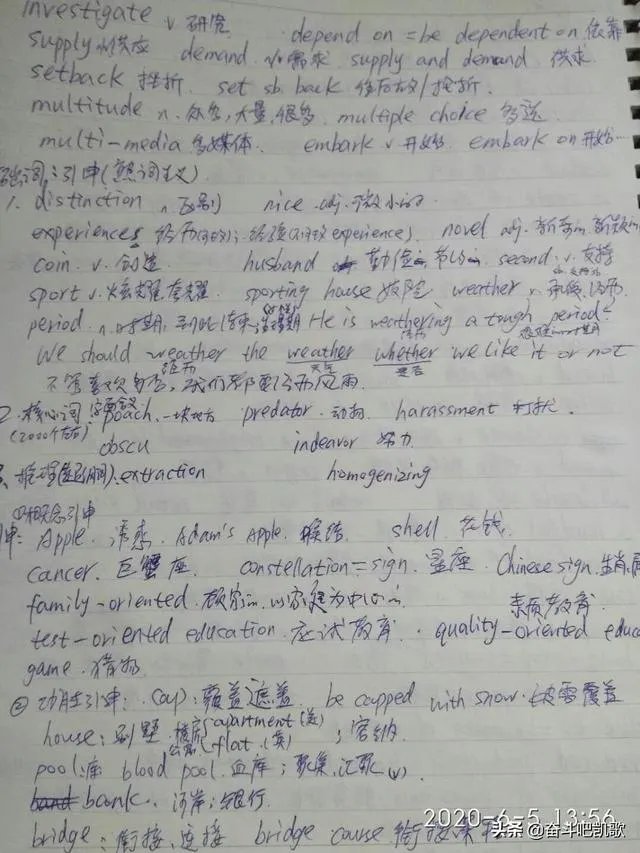 investigate v 研究 depend on = be dependent on 依靠
supply n/v 供应 demand n/v 需求 supply and demand 供求
setback 挫折 set sb. back 使后放/挫折.
multitude n. 众多, 大量, 很多. multiple choice 多选
multi-media 多媒体. embark v 开始. embark on 开始
引申(熟词 义)
1. distinction n 区别 nice adj. 微小的
experiences 经历(可数); 经验(不可数 experience) novel adj. 新奇
coin v. 创造 husband second v. 支持
sport v. 炫耀, 夸耀. sporting house 妓院 weather v.
period n. 时期, He is weathering a tough period.
We should weather the weather whether we like it or not
不管喜欢与否, 我们都要经历风雨.
2. 核心词 poach 一块地方 predator 动物 harassment 打扰.
(2000个左右) obscu indeavor 努力
extraction homogenizing
①概念引申
Apple. Adam's Apple. 喉结 shell 花钱
cancer. 巨蟹座. constellation = sign. 星座. Chinese sign. 生肖
family-oriented. 顾家的. 以家庭为中心的 素质教育.
test-oriented education. 应试教育. quality-oriented educa
game. 猎物
② 功能引申: cap: 覆盖遮盖. be capped with snow. 被雪覆盖
house: 别墅 楼房 apartment (美) ; 容纳.
公寓 flat. (英)
pool: 库 blood pool. 血库; 聚集, 汇聚 (v)
bank. 河岸; 银行.
bridge: 衔接, 连接 bridge cause
2020-6-5 13:56
头条 @奋斗吧凯歌